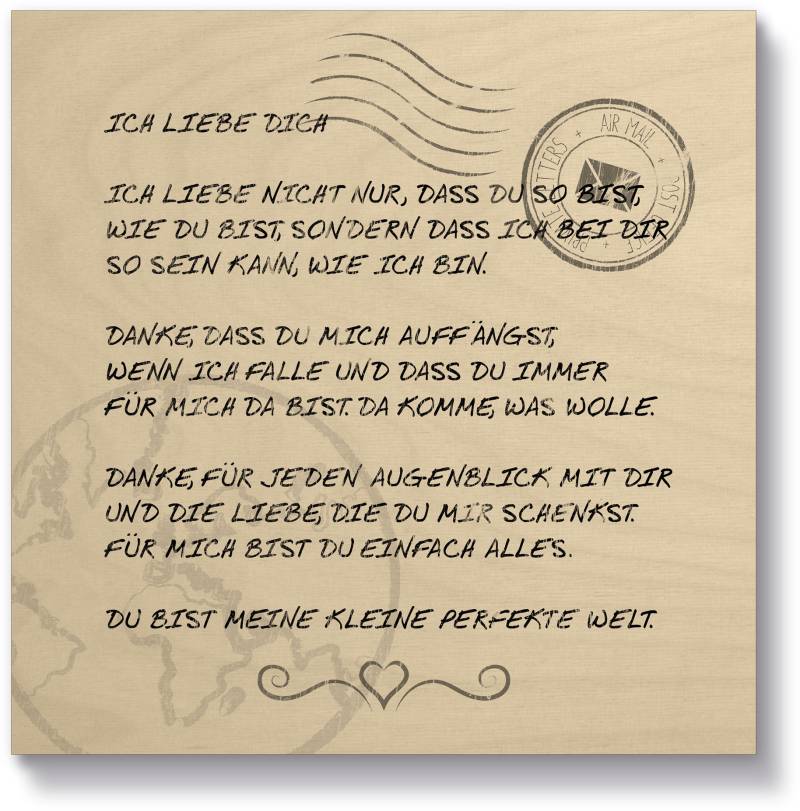 ICH LIEBE DICH
ICH LIEBE NICHT NUR, DASS DU SO BIST,
WIE DU BIST, SONDERN DASS ICH BEI DIR
SO SEIN KANN, WIE ICH BIN.
DANKE, DASS DU MICH AUFFÄNGST,
WENN ICH FALLE UND DASS DU IMMER
FÜR MICH DA BIST. DA KOMME, WAS WOLLE.
DANKE, FÜR JEDEN AUGENBLICK MIT DIR
UND DIE LIEBE, DIE DU MIR SCHENKST.
FÜR MICH BIST DU EINFACH ALLES.
DU BIST MEINE KLEINE PERFEKTE WELT.
AIR MAIL + POST OFFICE + PRIVATE LETTERS +